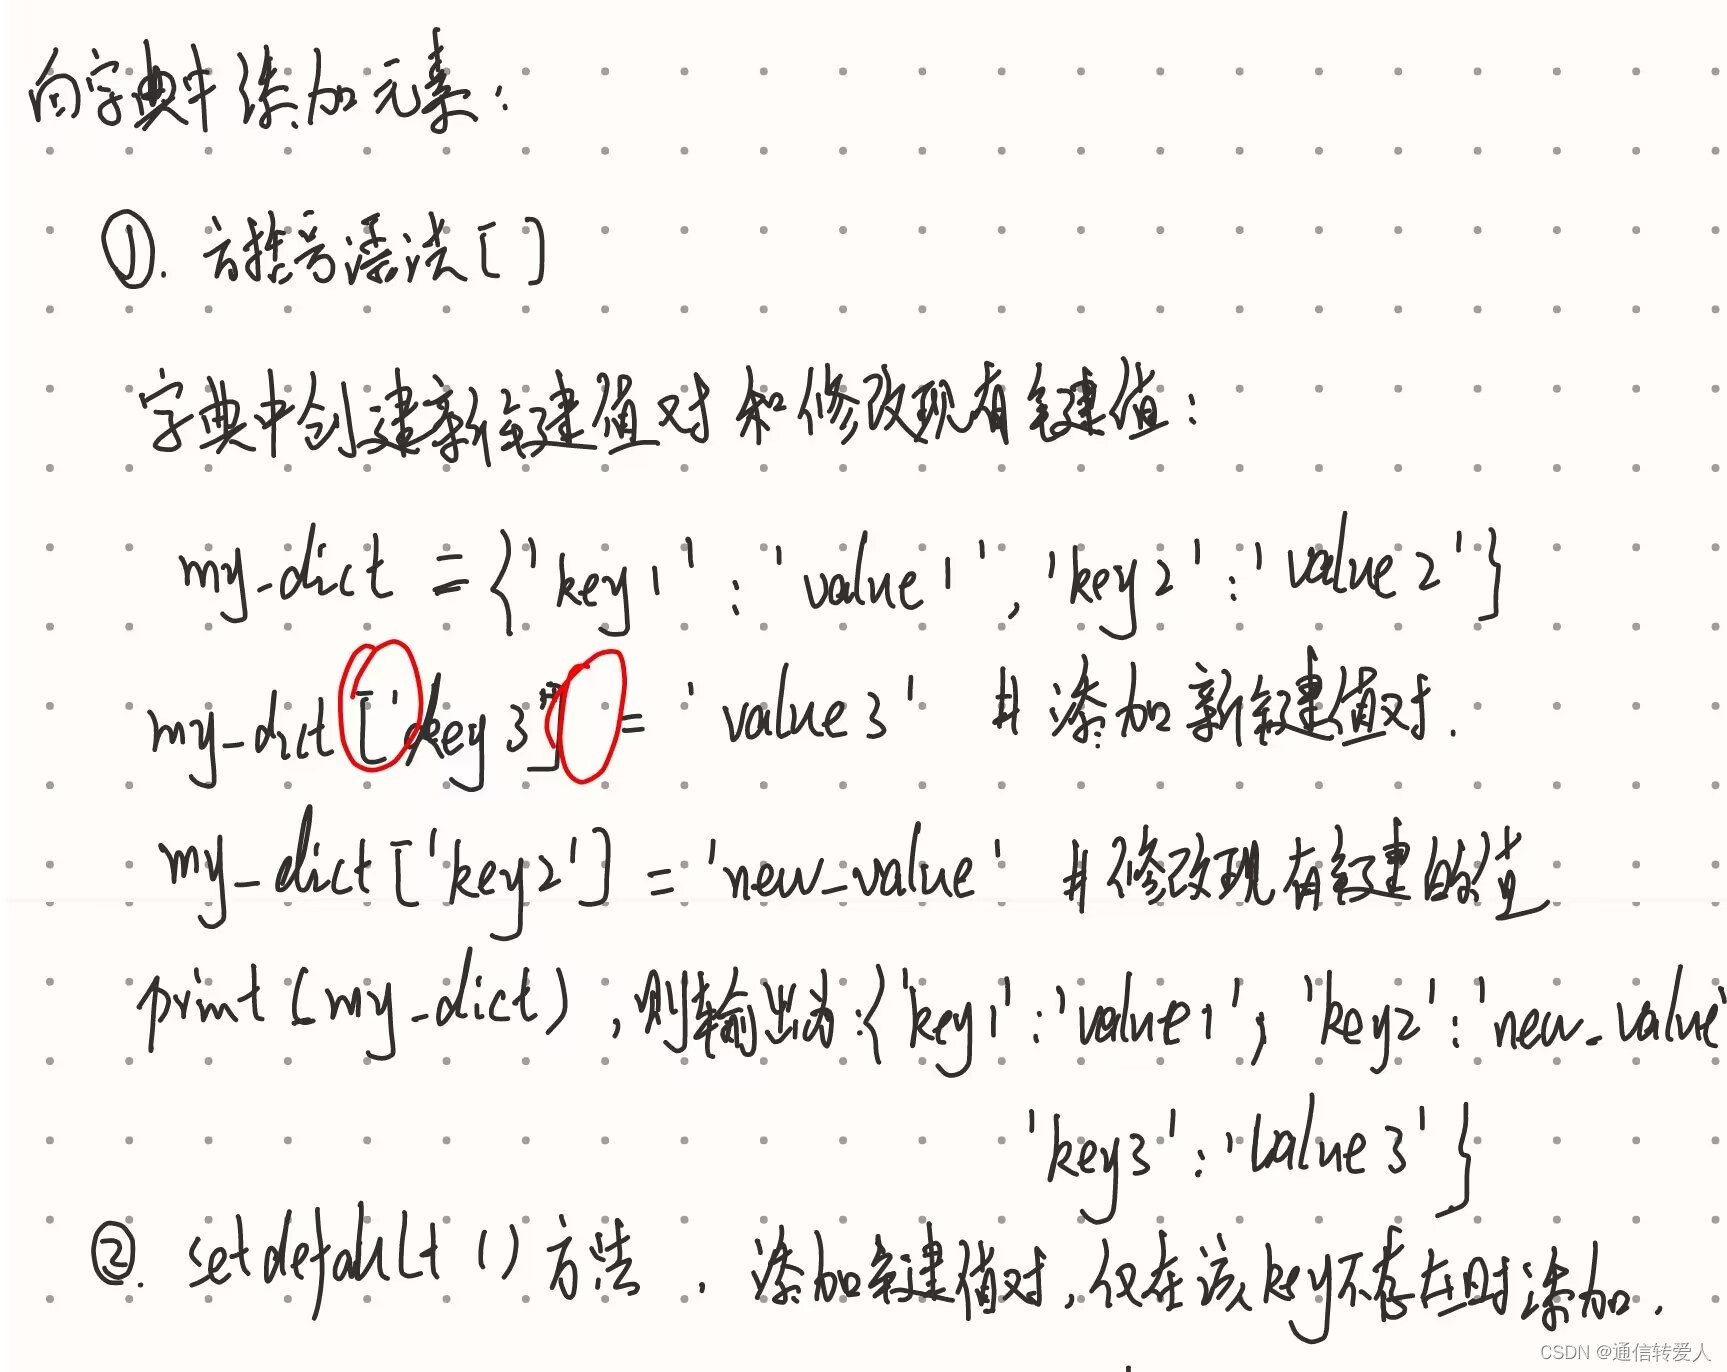 向字典中添加元素:
①. 方括号语法[ ]
字典中创建新键值对和修改现有键值:
my_dict = {'key1' : 'value1', 'key2' : 'value2'}
my_dict['key3'] = 'value3' # 添加新键值对.
my_dict['key2'] = 'new_value' # 修改现有键的值
print(my_dict),则输出为:{'key1':'value1', 'key2':'new_value'
'key3':'value3'}
②. setdefault()方法, 添加键值对,仅在该key不存在时添加.
CSDN @通信转爱人